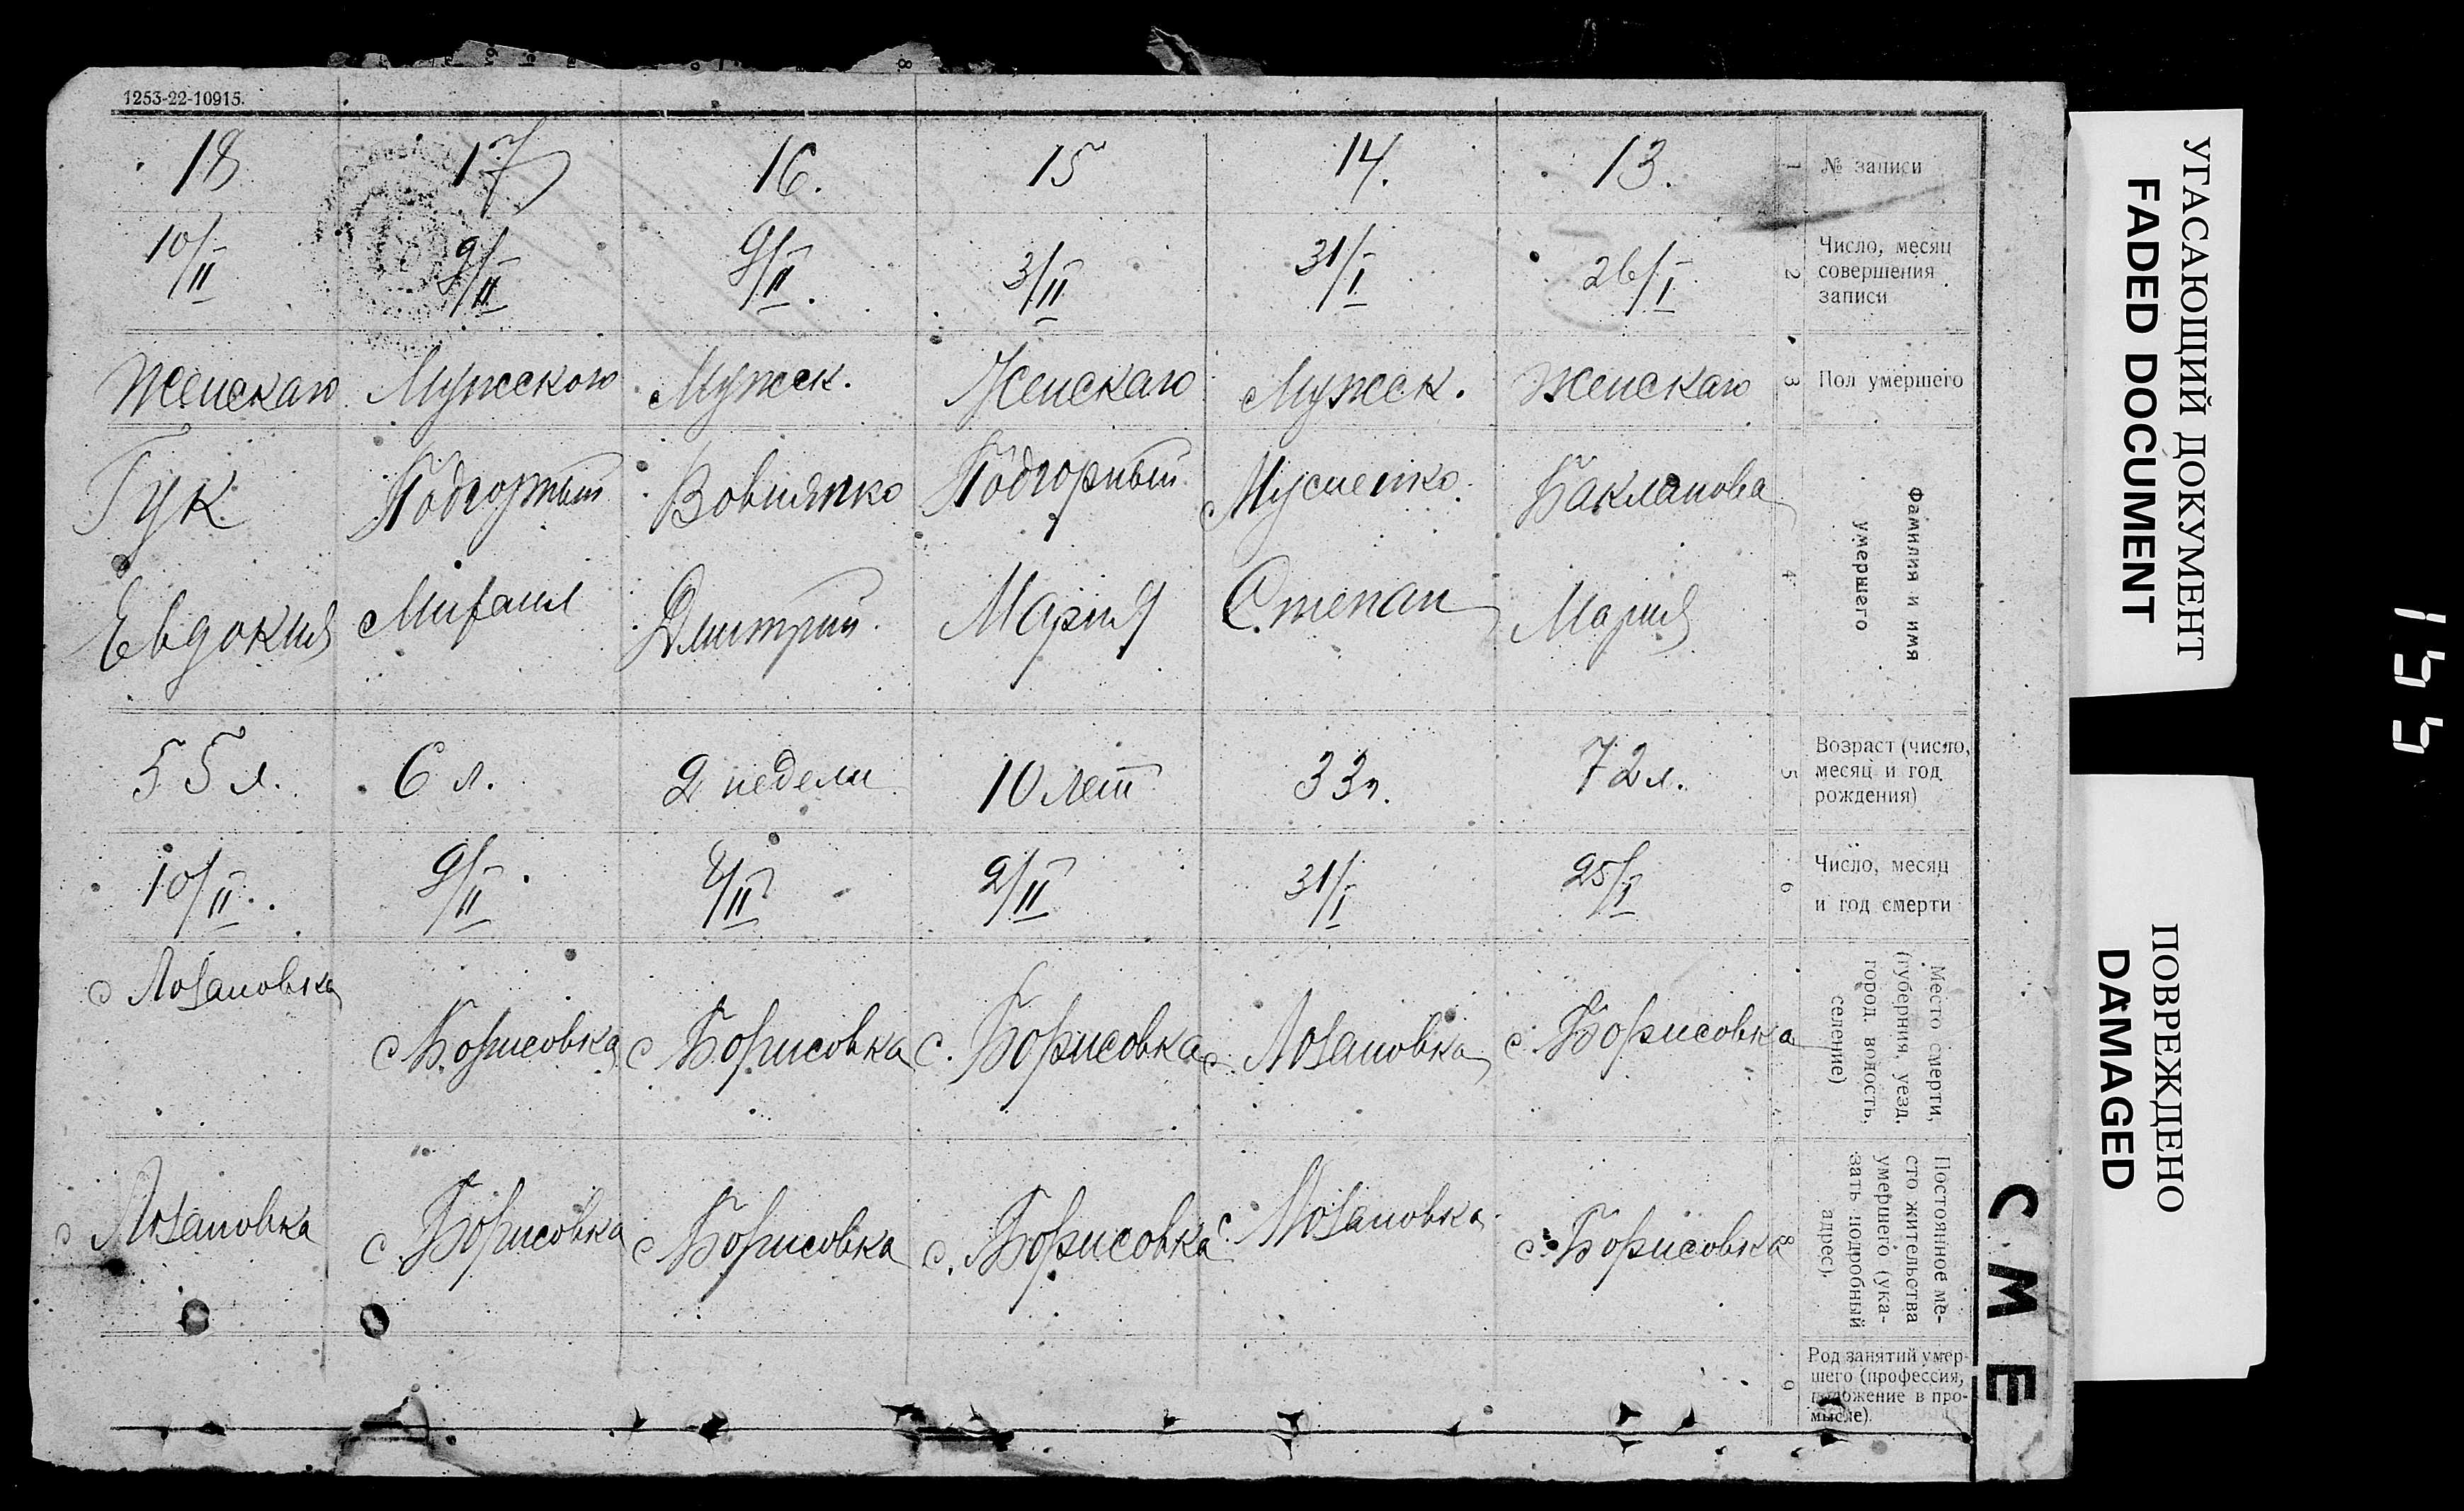 1253-22-10915.
18 17 16. 15 14. 13. 1 № записи
10/II 9/II 9/II. 3/II 31/I 26/I 2 Число, месяц
совершения
записи
Женскаго Мужского Мужск. Женскаго Мужск. Женскаго 3 Пол умершего
Гук Подгорный Подгорный Бакланова 4 Фамилия и имя
умершего
Евдокия Михаил Дмитрий Мария Степан Мария
55 л. 6 л. 2 недели 10 лет 33 л. 72 л. 5 Возраст (число,
месяц и год
рождения)
10/II 9/II 2/II 31/I 25/I 6 Число, месяц
и год смерти
с Лозановка с Борисовка с Борисовка с. Борисовка с. Лозановка с. Борисовка Место смерти,
(губерния, уезд,
город, волость,
селение)
с Лозановка с Борисовка с Борисовка с. Борисовка с. Лозановка с. Борисовка 8 Постоянное ме-
сто жительства
умершего (ука-
зать подробный
адрес).
9 Род занятий умер-
шего (профессия,
положение в про-
мысле).
СМЕ
УГАСАЮЩИЙ ДОКУМЕНТ
FADED DOCUMENT
ПОВРЕЖДЕНО
DAMAGED